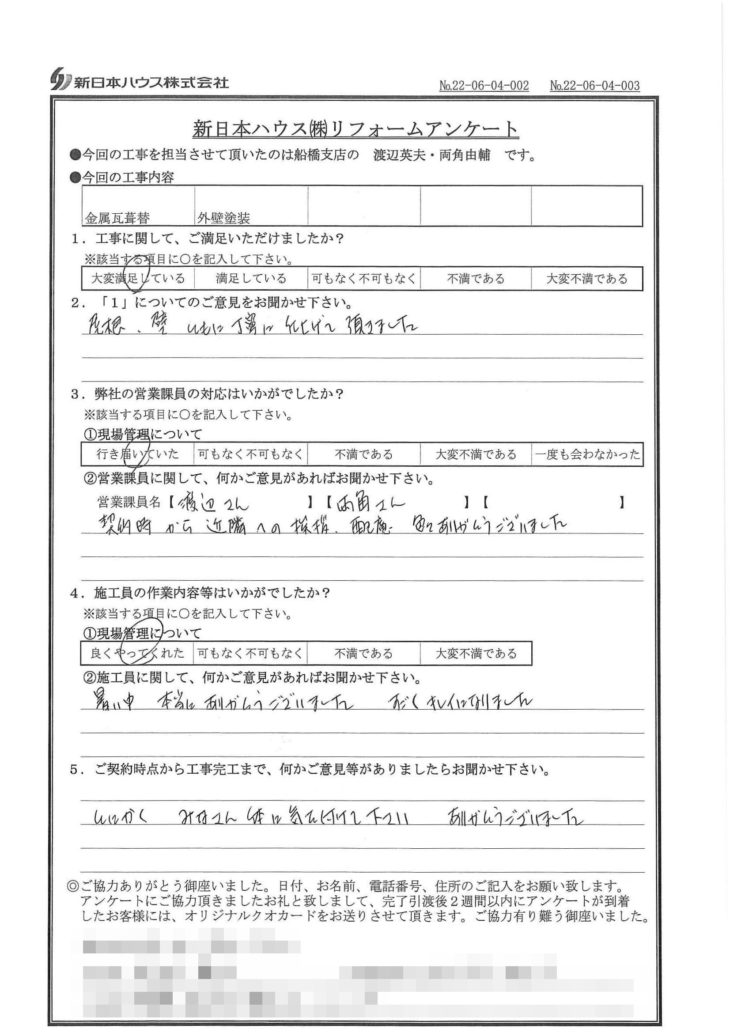 新日本ハウス株式会社
№22-06-04-002 №22-06-04-003
新日本ハウス㈱リフォームアンケート
●今回の工事を担当させて頂いたのは船橋支店の 渡辺英夫・両角由輔 です。
●今回の工事内容
金属瓦葺替 外壁塗装
1．工事に関して、ご満足いただけましたか？
※該当する項目に○を記入して下さい。
大変満足している 満足している 可もなく不可もなく 不満である 大変不満である
2．「1」についてのご意見をお聞かせ下さい。
屋根、壁 ともに丁寧に仕上げて頂きました
3．弊社の営業課員の対応はいかがでしたか？
※該当する項目に○を記入して下さい。
①現場管理について
行き届いていた 可もなく不可もなく 不満である 大変不満である 一度も会わなかった
②営業課員に関して、何かご意見があればお聞かせ下さい。
営業課員名【渡辺さん 】【両角さん 】【 】
契約時から近隣への挨拶、配慮 ありがとうございました
4．施工員の作業内容等はいかがでしたか？
※該当する項目に○を記入して下さい。
①現場管理について
良くやってくれた 可もなく不可もなく 不満である 大変不満である
②施工員に関して、何かご意見があればお聞かせ下さい。
暑い中 本当にありがとうございました キレイになりました
5．ご契約時点から工事完工まで、何かご意見等がありましたらお聞かせ下さい。
とにかく みなさん 体に気を付けて下さい ありがとうございました
◎ご協力ありがとう御座いました。日付、お名前、電話番号、住所のご記入をお願い致します。
アンケートにご協力頂きましたお礼と致しまして、完了引渡後２週間以内にアンケートが到着
したお客様には、オリジナルクオカードをお送りさせて頂きます。ご協力有り難う御座いました。